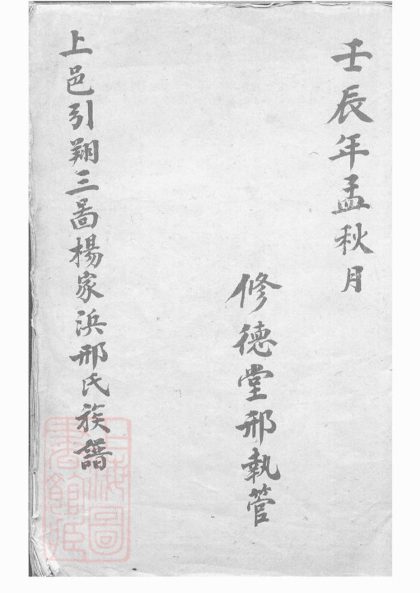 壬辰年孟秋月
修德堂邢執管
上邑引翔三啚楊家浜邢氏族譜
上海圖書館藏